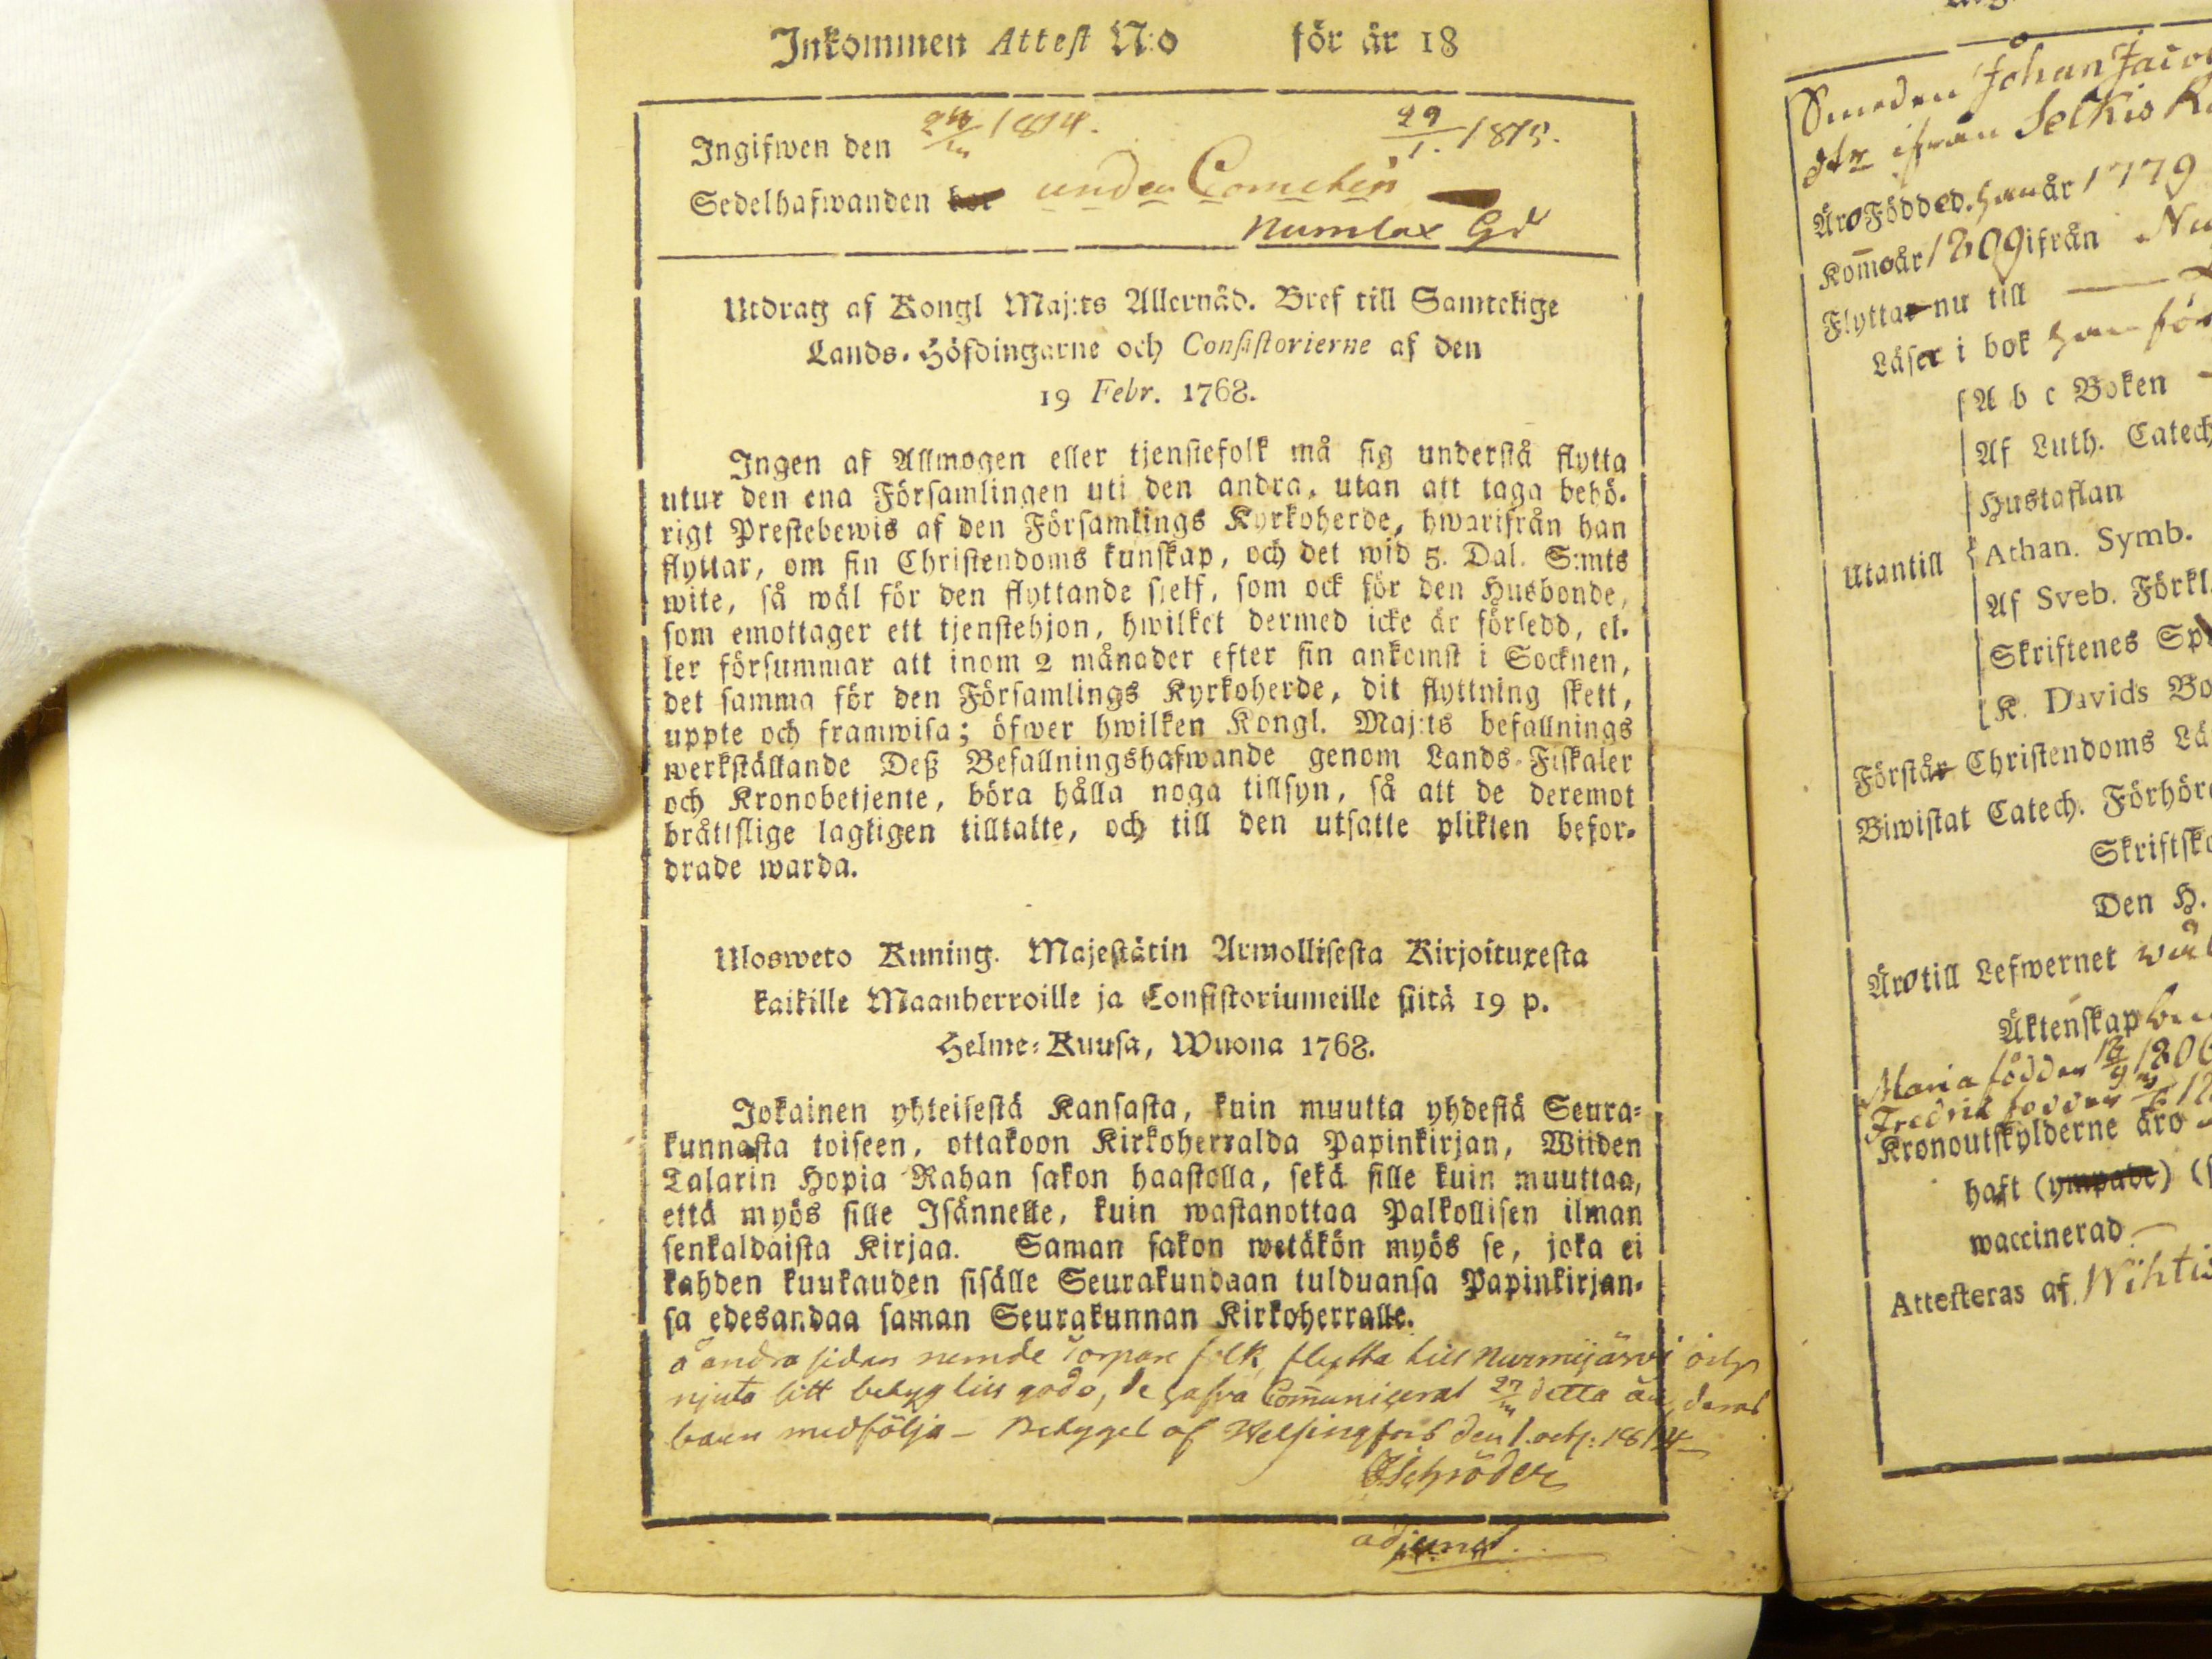 Inkommen Attest N:o för år 18
Ingifwen den 1814. 29/1. 1815.
Sedelhafwanden bor under
Numlax Gd
Utdrag af Kongl Maj:ts Allernåd. Bref till Samtelige
Lands-Höfdingarne och Consistorierne af den
19 Febr. 1768.
Ingen af Allmogen eller tjenstefolk må sig understå flytta
utur den ena Församlingen uti den andra, utan att taga behö-
rigt Prestebewis af den Församlings Kyrkoherde, hwarifrån han
flyttar, om sin Christendoms kunskap, och det wid 5. Dal. S:mts
wite, så wäl för den flyttande sjelf, som ock för den Husbonde,
som emottager ett tjenstehjon, hwilket dermed icke är försedd, el-
ler försummar att inom 2 månader efter sin ankomst i Socknen,
det samma för den Församlings Kyrkoherde, dit flyttning skett,
uppte och framwisa; öfwer hwilken Kongl. Maj:ts befallnings
werkställande Deß Befallningshafwande genom Lands-Fiskaler
och Kronobetjente, böra hålla noga tillsyn, så att de deremot
bråttslige lagligen tilltalte, och till den utsatte plikten befor-
drade warda.
Ulosweto Kuning. Majestätin Armollisesta Kirjoituxesta
kaikille Maanherroille ja Consistoriumeille siitä 19 p.
Helme-Kuusa, Wuona 1768.
Jokainen yhteisestä Kansasta, kuin muutta yhdestä Seura-
kunnasta toiseen, ottakoon Kirkoherralda Papinkirjan, Wiiden
Talarin Hopia Rahan sakon haastolla, sekä sille kuin muuttaa,
että myös sille Isännelle, kuin wastanottaa Palkollisen ilman
senkaldaista Kirjaa. Saman sakon wetäkön myös se, joka ei
kahden kuukauden sisälle Seurakundaan tulduansa Papinkirjan-
sa edesandaa saman Seurakunnan Kirkoherralle.
å andra sidan nemde torpare folk flytta till Nurmijärvi och
njuta sitt betyg till godo, de hafva Communicerat detta år, deras
barn medfölja - Betyget af Helsingfors den 1. oct: 1814
Schröder
adjunct.
Smeden Johan Jaco
ifrån Selkis
Äro Född ed. han år 1779
Kom̅o år 1809 ifrån Nu
Flyttar nu till
Läser i bok han för
A b c Boken
Af Luth. Catech
Hustaflan
Utantill Athan. Symb.
Af Sveb. Förkl.
Skriftenes Sp
K. Davids Bo
Förstår Christendoms Lä
Biwistat Catech. Förhör
Skriftsk
Den H.
Äro till Lefwernet wäl
Äktenskap
Maria född den 1806
Fredrik född den
Kronoutskylderne äro
haft (ympade) (
waccinerad
Attesteras af Wihtis